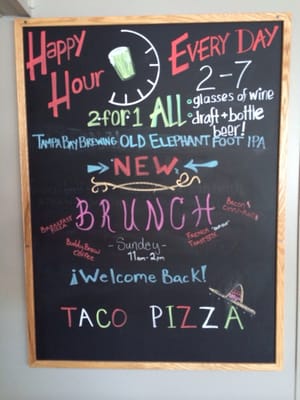 Happy Hour
Every Day
2-7
2 for 1 ALL
• glasses of wine
• draft + bottle beer!
Tampa Bay Brewing Old Elephant Foot IPA
NEW
BRUNCH
Breakfast Pizza
Buddy Brew Coffee
- Sunday -
11am-2pm
French Toast
Bacon
¡Welcome Back!
TACO PIZZA